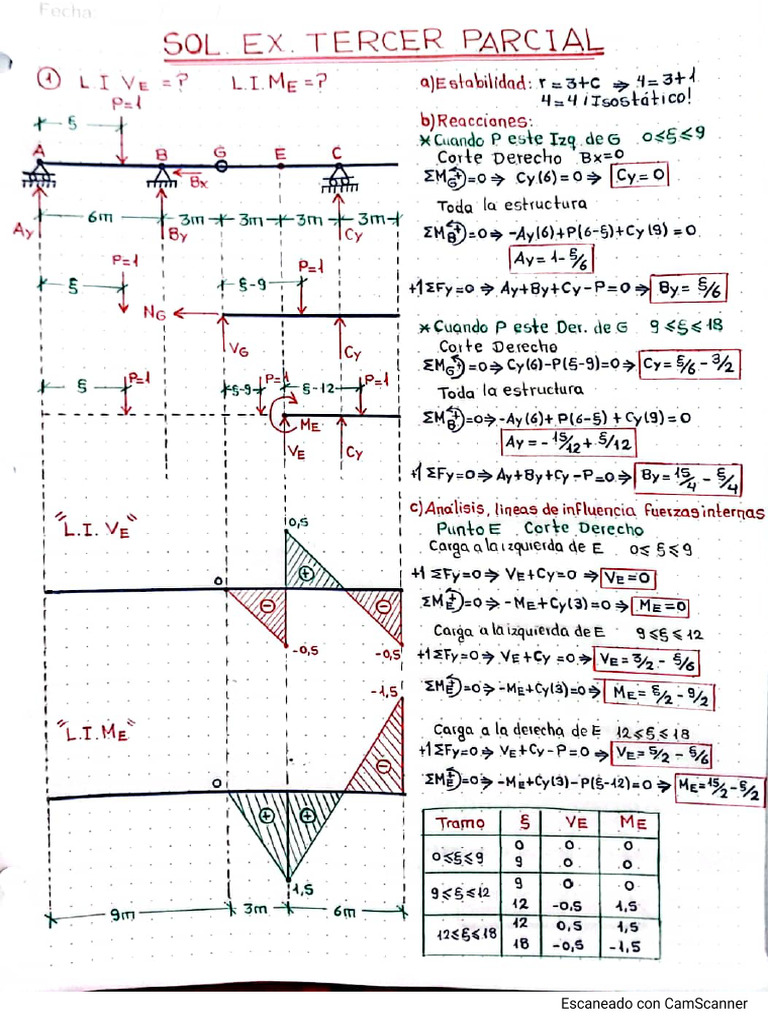 Fecha
SOL. EX. TERCER PARCIAL
① L.I VE = ? L.I.ME = ?
P=1
ξ
A B G E C
Bx
6m 3m 3m 3m 3m 3m
Ay By Cy
P=1 P=1
ξ ξ-9
NG
VG Cy
P=1 P=1 P=1
ξ ξ-9 ξ-12
ME
VE Cy
"L.I. VE"
0,5
0
+
-
-
-0,5
-0,5
"L.I.ME"
-1,5
0
-
+ +
1,5
9m 3m 6m
a) Estabilidad: r = 3+C ⇒ 4 = 3+1
4 = 4 ¡Isostático!
b) Reacciones:
* Cuando P este Izq. de G 0≤ξ≤9
Corte Derecho Bx=0
ΣMG=0 ⇒ Cy(6)=0 ⇒ Cy=0
Toda la estructura
ΣMB=0 ⇒ -Ay(6)+P(6-ξ)+Cy(9)=0
Ay=1-ξ/6
+↑ΣFy=0 ⇒ Ay+By+Cy-P=0 ⇒ By= ξ/6
* Cuando P este Der. de G 9≤ξ≤18
Corte Derecho
ΣMG=0 ⇒ Cy(6)-P(ξ-9)=0 ⇒ Cy= ξ/6 - 3/2
Toda la estructura
ΣMB=0 ⇒ -Ay(6)+P(6-ξ)+Cy(9)=0
Ay= -15/12 + ξ/12
+↑ΣFy=0 ⇒ Ay+By+Cy-P=0 ⇒ By= 15/4 - ξ/4
c) Análisis, líneas de influencia fuerzas internas
Punto E Corte Derecho
Carga a la izquierda de E 0≤ξ≤9
+↑ΣFy=0 ⇒ VE+Cy=0 ⇒ VE=0
ΣME=0 ⇒ -ME+Cy(3)=0 ⇒ ME=0
Carga a la izquierda de E 9≤ξ≤12
+↑ΣFy=0 ⇒ VE+Cy=0 ⇒ VE= 3/2 - ξ/6
ΣME=0 ⇒ -ME+Cy(3)=0 ⇒ ME= ξ/2 - 9/2
Carga a la derecha de E 12≤ξ≤18
+↑ΣFy=0 ⇒ VE+Cy-P=0 ⇒ VE= 5/2 - ξ/6
ΣME=0 ⇒ -ME+Cy(3)-P(ξ-12)=0 ⇒ ME= 15/2 - ξ/2
Tramo ξ VE ME
0≤ξ≤9 0 0 0
9 0 0
9≤ξ≤12 9 0 0
12 -0,5 1,5
12≤ξ≤18 12 0,5 1,5
18 -0,5 -1,5
Escaneado con CamScanner